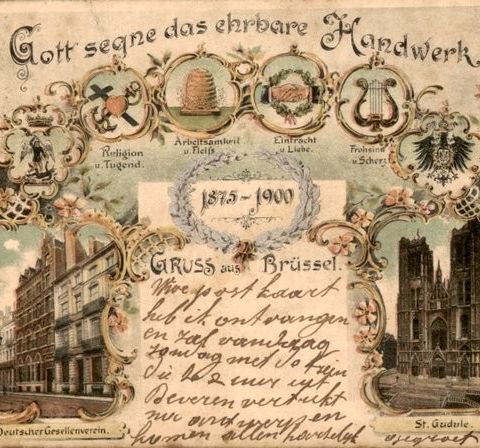 Gott segne das ehrbare Handwerk
Religion
u. Tugend.
Arbeitsamkeit
u. Fleiss
Eintracht
u. Liebe.
Frohsinn
u. Scherz
1875-1900
GRUSS aus Brüssel.
post kaart
heb ik ontvangen
en zal vandaag
zondag met
die 2 uur uyt
Beveren vertrekt
en
komen allen hartelijk
gegroet
Deutscher Gesellenverein.
St. Gudule.